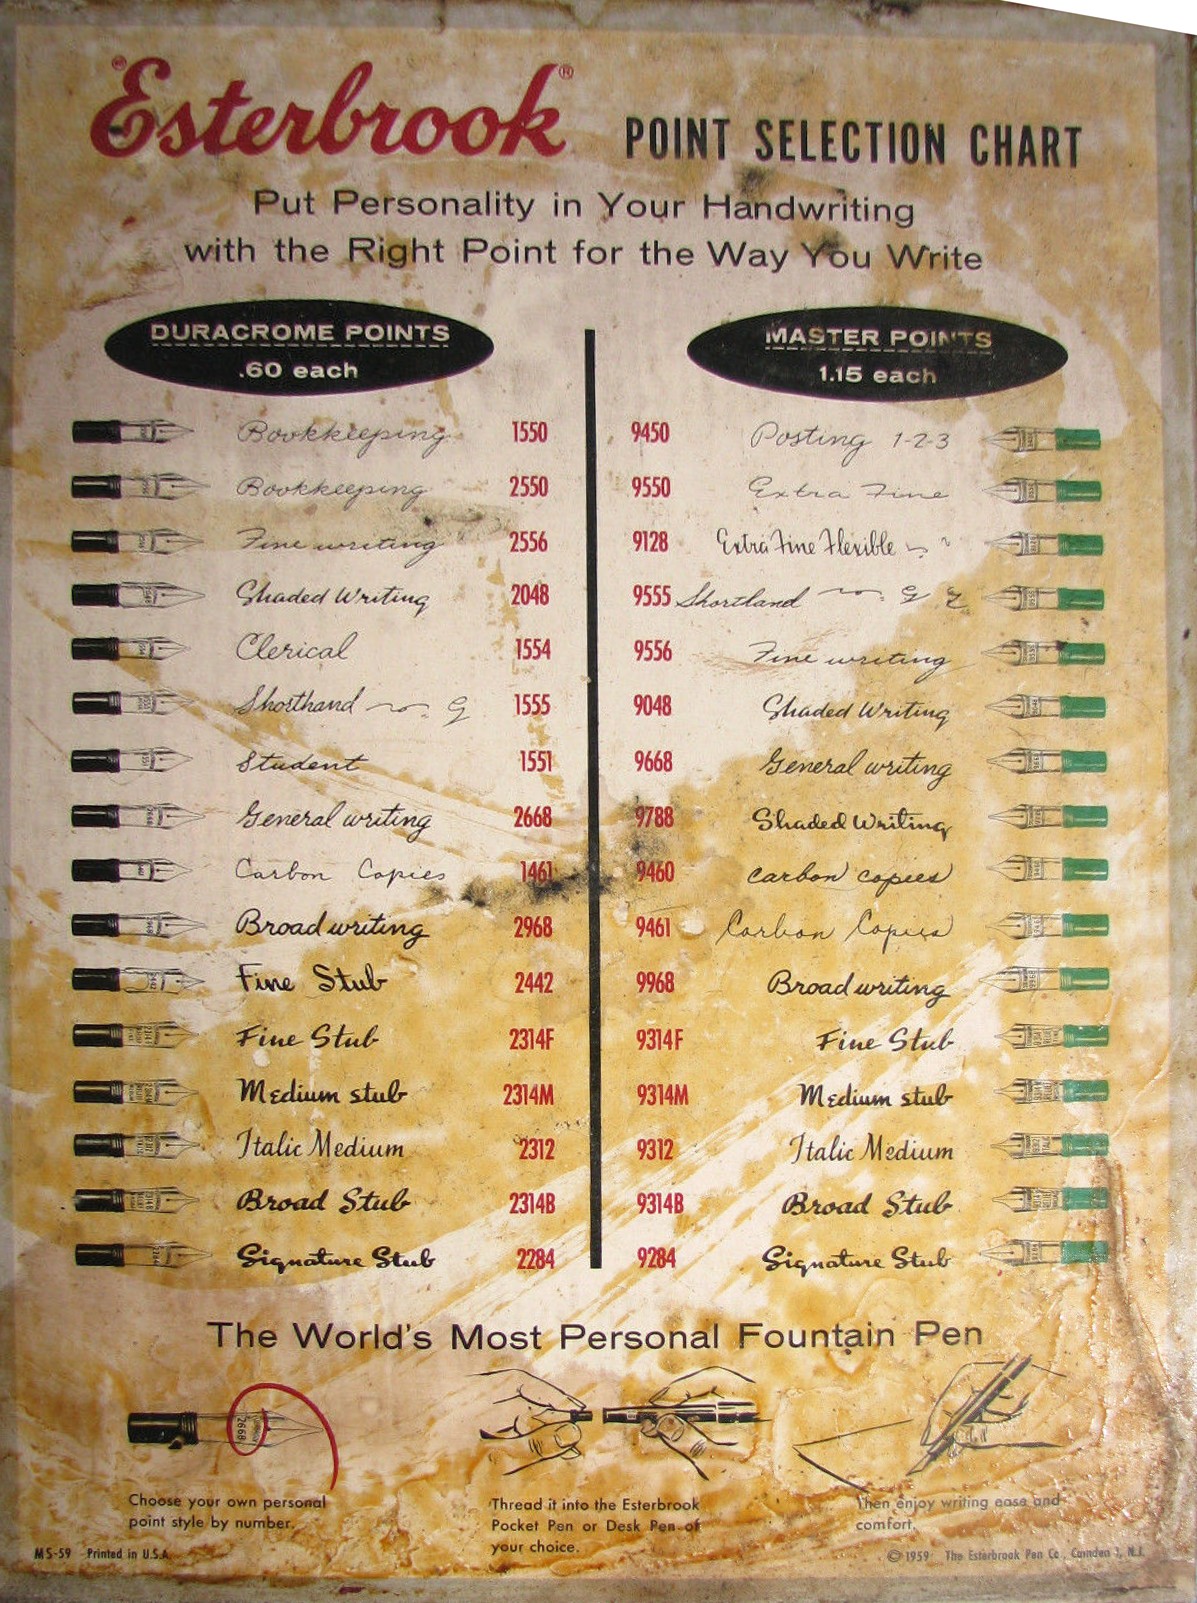 Esterbrook® POINT SELECTION CHART
Put Personality in Your Handwriting
with the Right Point for the Way You Write
DURACROME POINTS
.60 each
Bookkeeping 1550
Bookkeeping 2550
Fine writing 2556
Shaded Writing 2048
Clerical 1554
Shorthand 1555
Student 1551
General writing 2668
Carbon Copies 1461
Broad writing 2968
Fine Stub 2442
Fine Stub 2314F
Medium stub 2314M
Italic Medium 2312
Broad Stub 2314B
Signature Stub 2284
MASTER POINTS
1.15 each
9450 Posting 1-2-3
9550 Extra Fine
9128 Extra Fine Flexible
9555 Shortland
9556 Fine writing
9048 Shaded Writing
9668 General writing
9788 Shaded Writing
9460 carbon copies
9461 Carbon Copies
9968 Broad writing
9314F Fine Stub
9314M Medium stub
9312 Italic Medium
9314B Broad Stub
9284 Signature Stub
The World's Most Personal Fountain Pen
2668
Choose your own personal
point style by number.
Thread it into the Esterbrook
Pocket Pen or Desk Pen of
your choice.
Then enjoy writing ease and
comfort.
MS-59 Printed in U.S.A.
© 1959 The Esterbrook Pen Co., Camden 1, N.J.